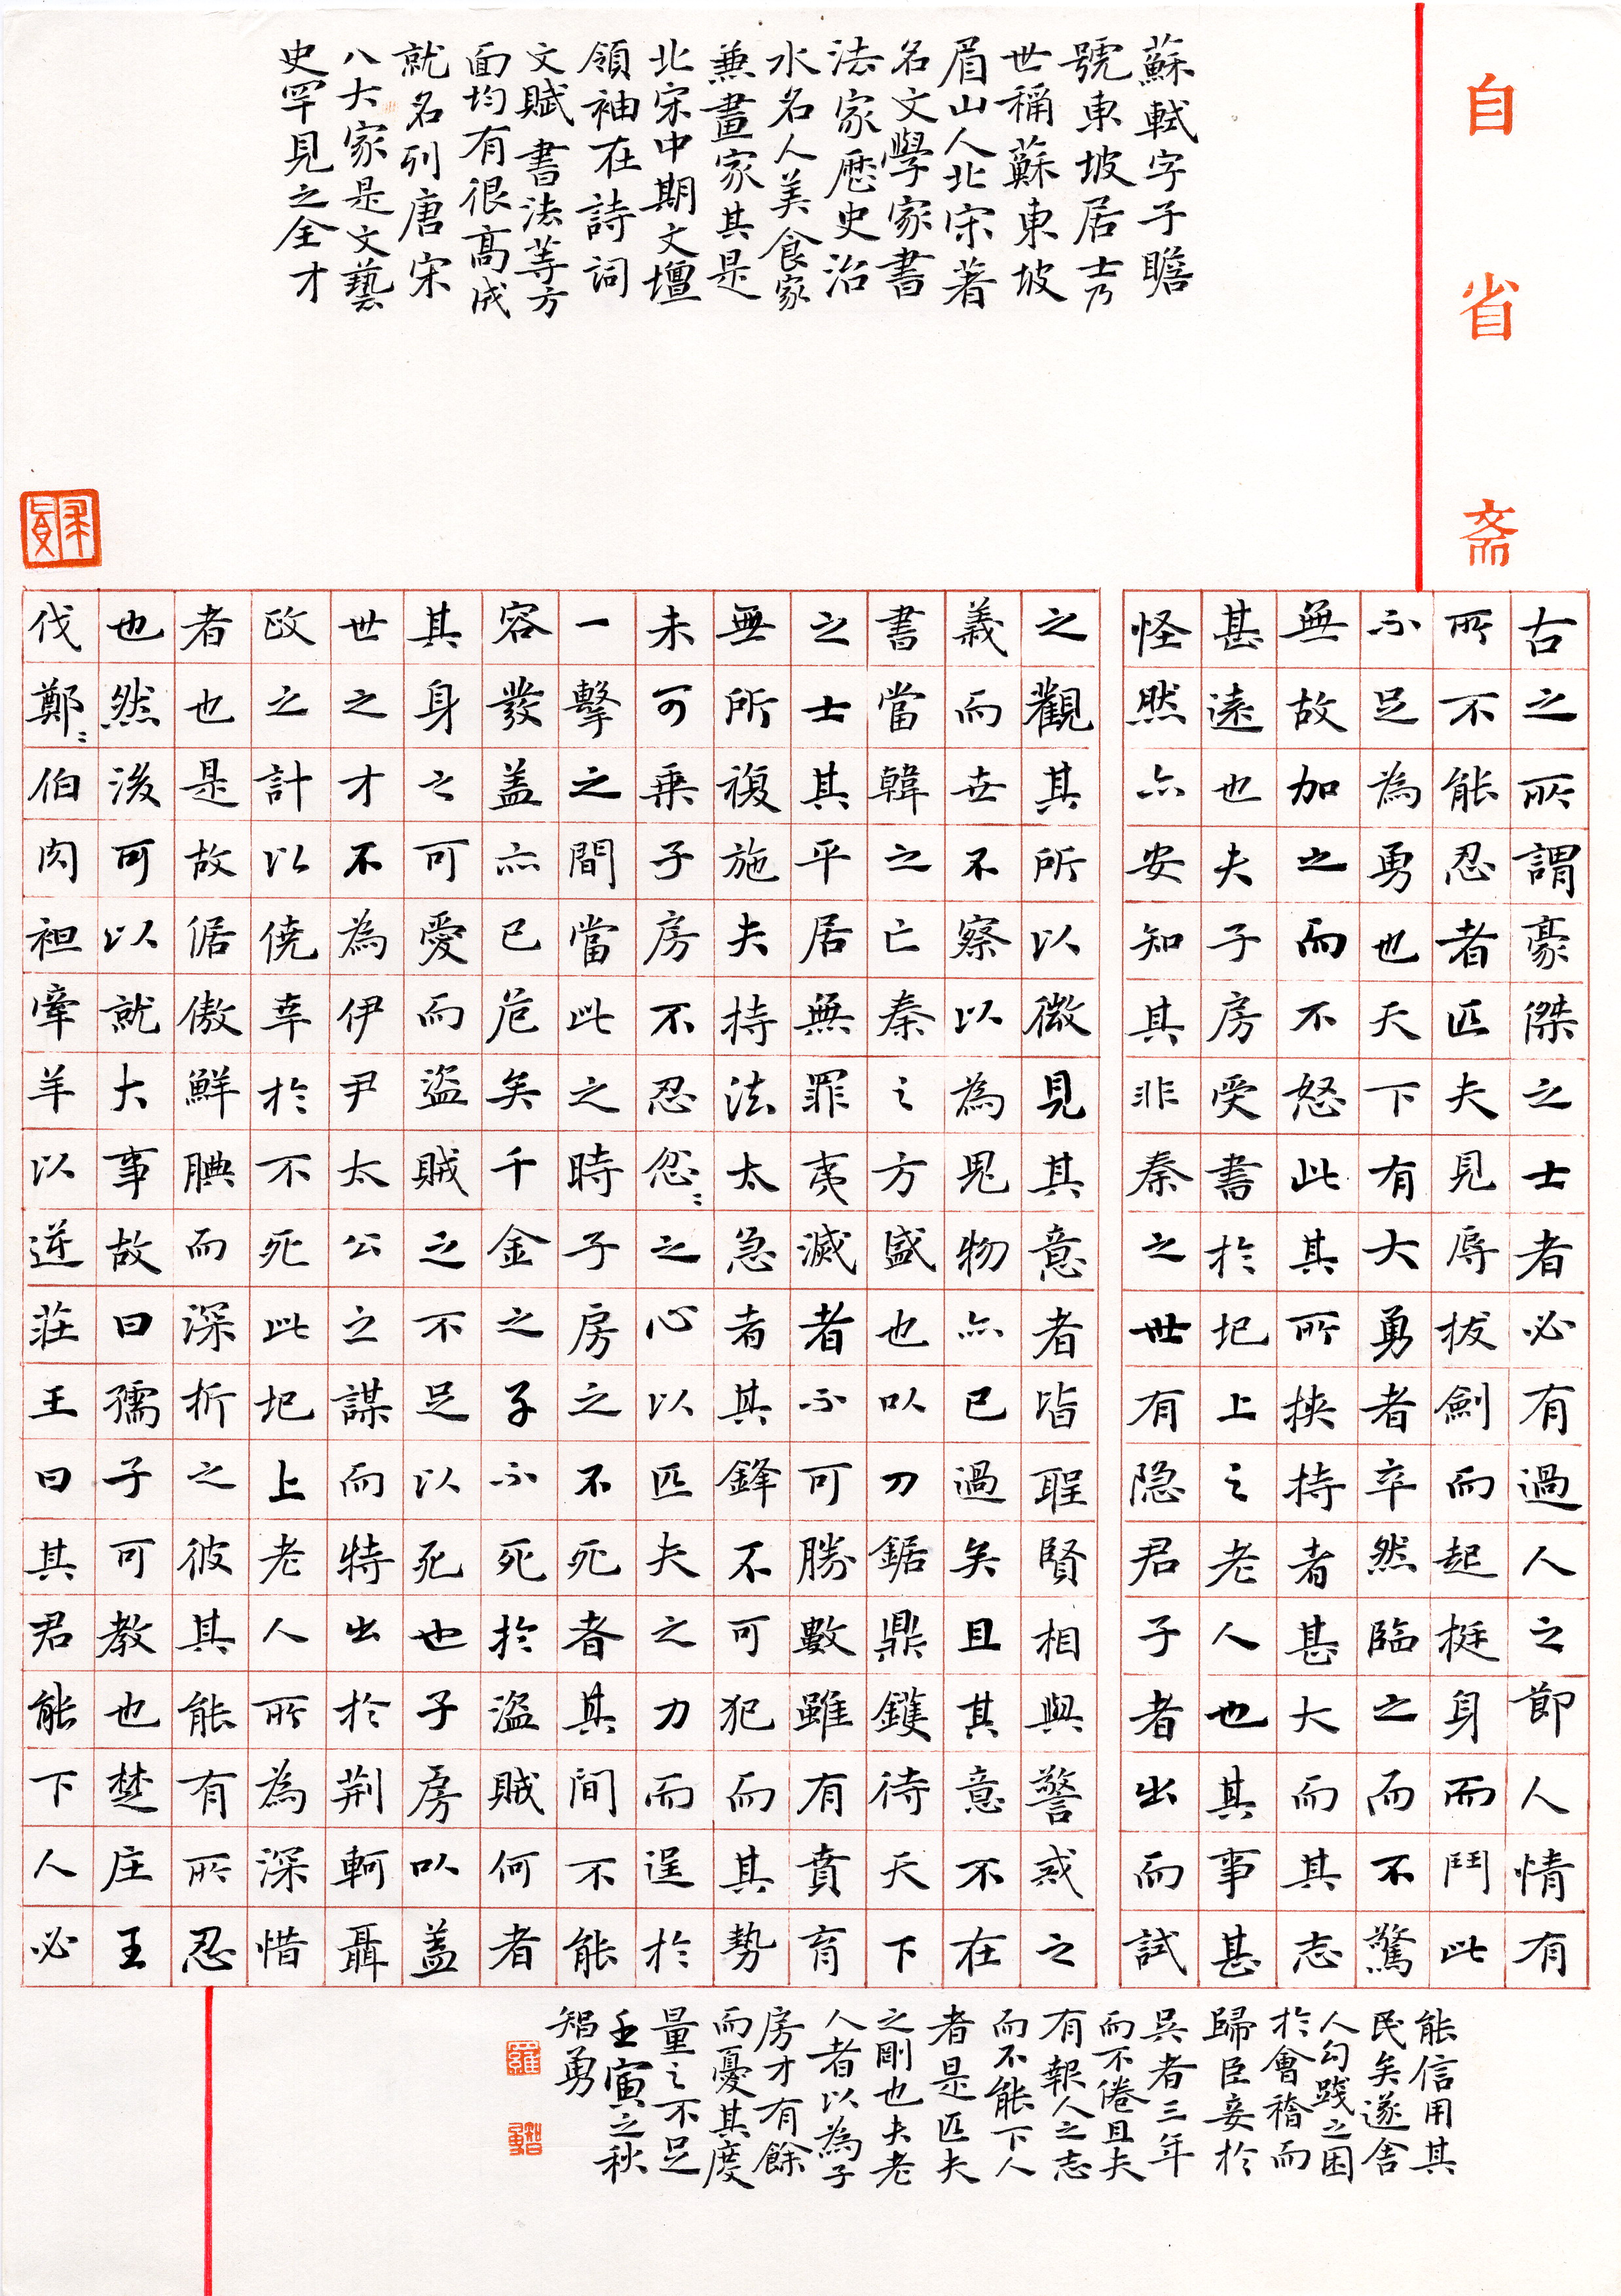 自省斋
蘇軾字子瞻
號東坡居士乃
世稱蘇東坡
眉山人北宋著
名文學家書
法家歷史治
水名人美食家
兼畫家其是
北宋中期文壇
領袖在詩詞
文賦書法等方
面均有很高成
就名列唐宋
八大家是文藝
史罕見之全才
古之所謂豪傑之士者必有過人之節人情有
所不能忍者匹夫見辱拔劍而起挺身而鬥此
不足為勇也天下有大勇者卒然臨之而不驚
無故加之而不怒此其所挾持者甚大而其志
甚遠也夫子房受書於圯上之老人也其事甚
怪然亦安知其非秦之世有隐君子者出而試
之觀其所以微見其意者皆聖賢相與警戒之
義而世不察以為鬼物亦已過矣且其意不在
書當韓之亡秦之方盛也以刀鋸鼎鑊待天下
之士其平居無罪夷滅者不可勝數雖有賁育
無所複施夫持法太急者其鋒不可犯而其勢
未可乘子房不忍忿〻之心以匹夫之力而逞於
一擊之間當此之時子房之不死者其間不能
容發盖亦已危矣千金之子不死於盜賊何者
其身之可愛而盜賊之不足以死也子房以盖
世之才不為伊尹太公之謀而特出於荆軻聶
政之計以僥幸於不死此圯上老人所為深惜
者也是故倨傲鮮腆而深折之彼其能有所忍
也然後可以就大事故曰孺子可教也楚庄王
伐鄭〻伯肉袒牽羊以逆莊王曰其君能下人必
能信用其
民矣遂舍
人勾踐之困
於會稽而
歸臣妾於
吳者三年
而不倦且夫
有報人之志
而不能下人
者是匹夫
之剛也夫老
人者以為子
房才有餘
而憂其度
量之不足
壬寅之秋
智勇
羅
智勇